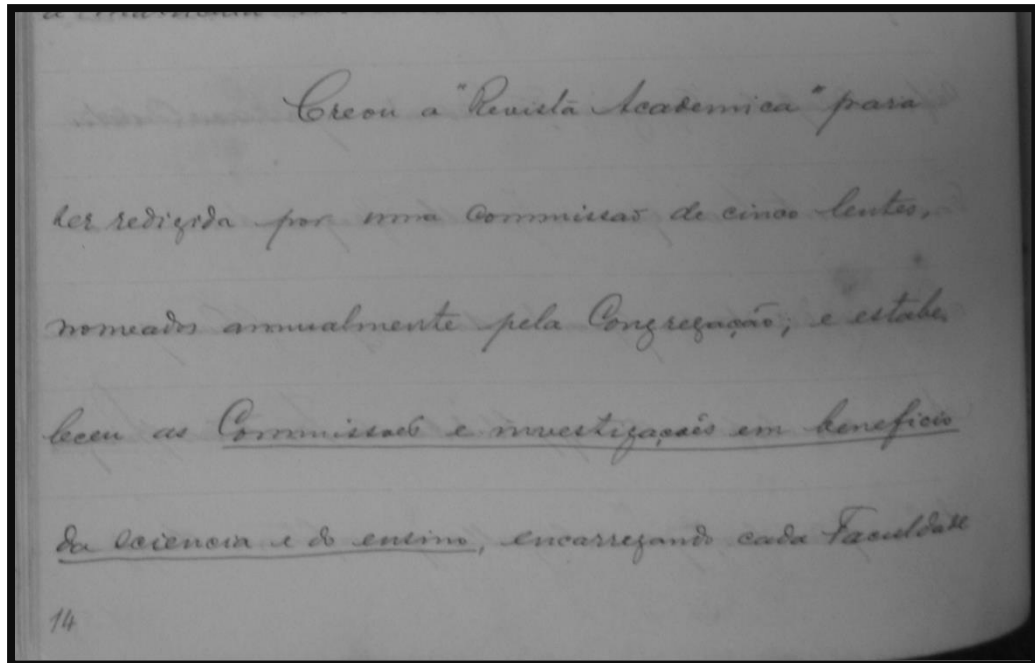 Creou a "Revista Academica" para
ser redigida por uma commissão de cinco lentes,
nomeados annualmente pela Congregação; e estabe-
leceu as Commissões e investigações em beneficio
da sciencia e do ensino, encarregando cada Faculdade
14